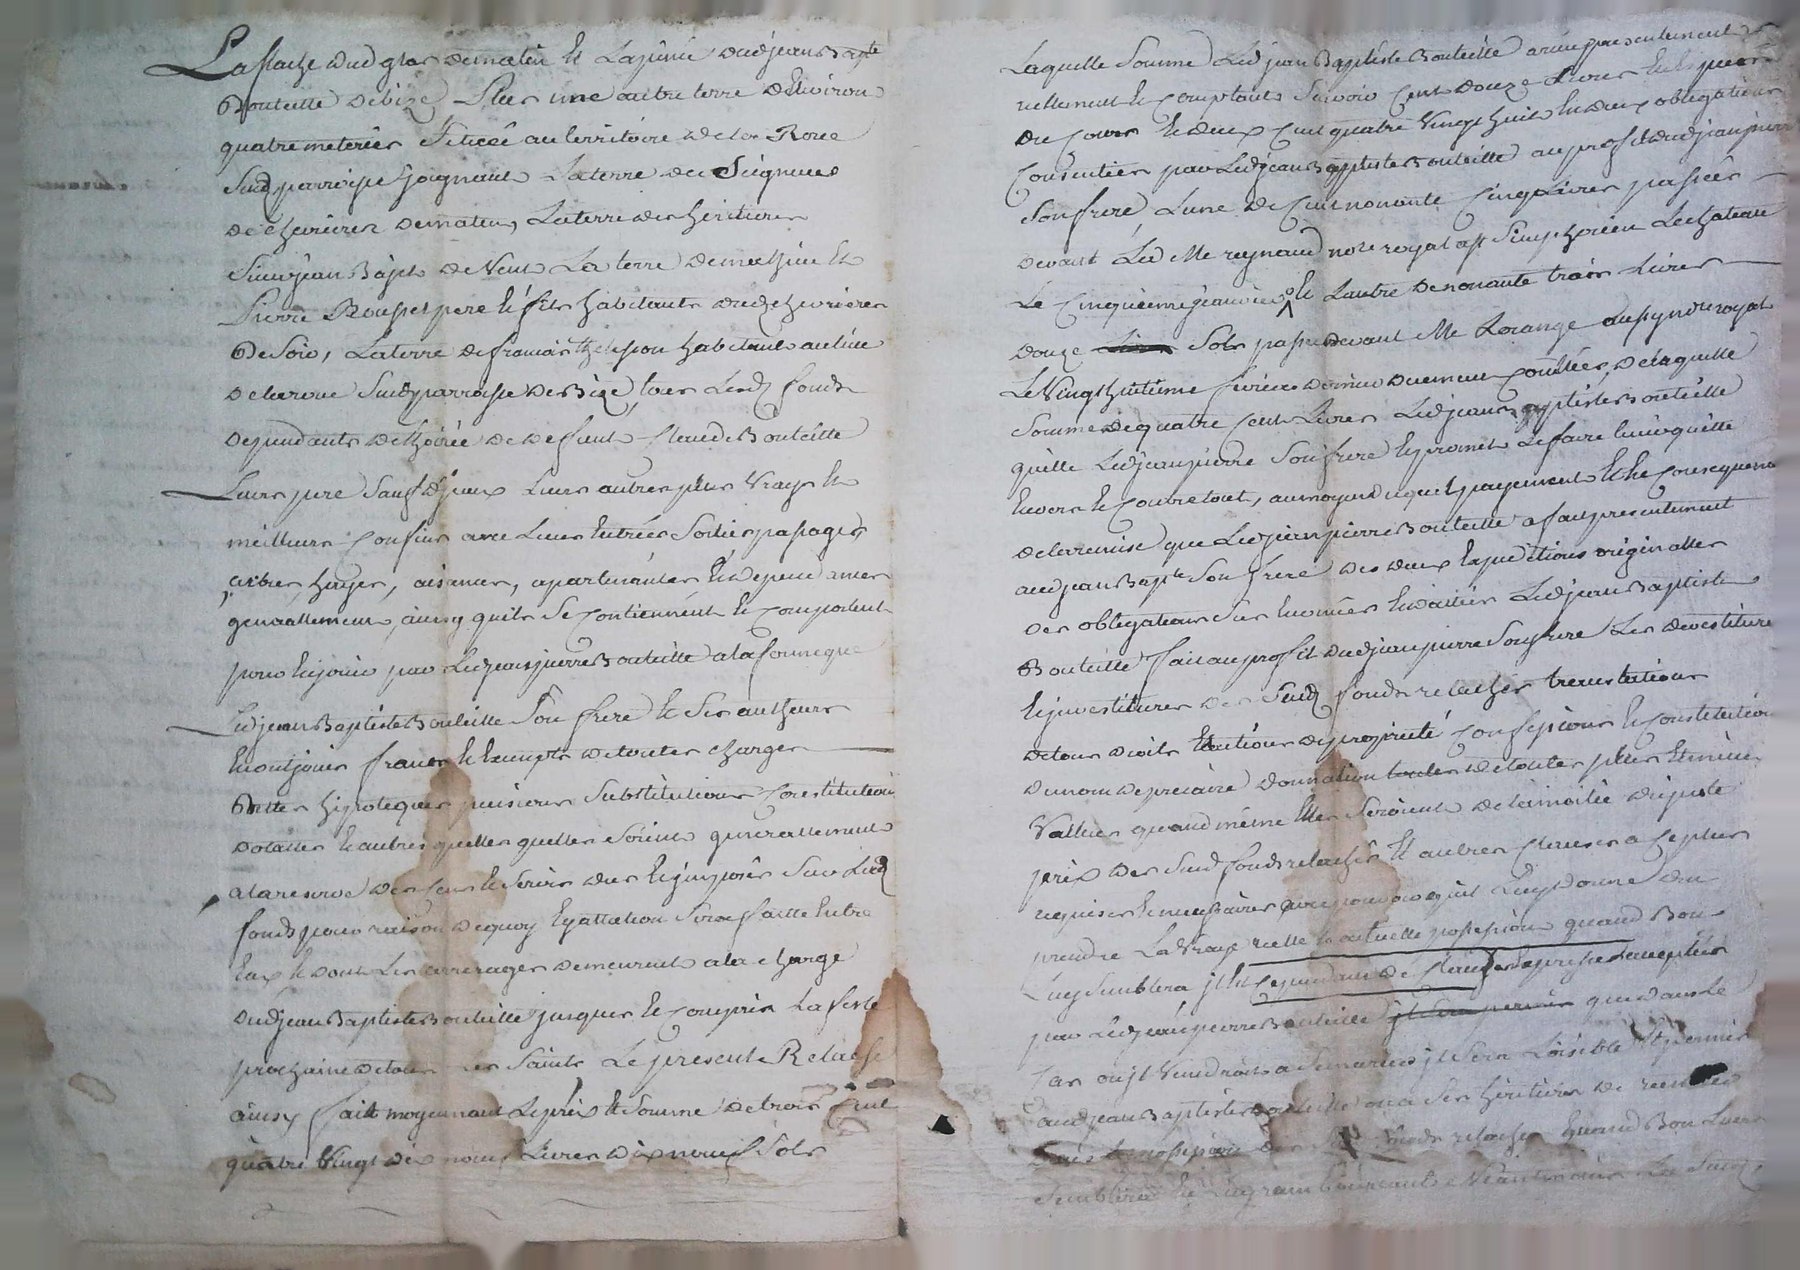 La place dud glas de matin et la pinée dud jean Bapte
Bouteille de bize Plus une autre terre denviron
quatre meterées Scituée au territoire de la Roue
Susd parroisse joignant la terre du Seigneur
de chevrieres de matin, la terre des heritiers
Sieur jean Bapte de Vent La terre de
Pierre Rousset pere et fils habitants dud chevrieres
de Soir, la terre de francois habitant au lieu
de la roue Susd parroisse de Bize, tous lesd fonds
dependants de lhoirie de deffunt Claude Bouteille
Leurs pere Sauf d'yceux leurs autres plus Vrays et
meilleurs Confins avec leurs Entrées Sorties passages,
arbres, hayes, aisances, apartenances et dependances
generallement, ainsy quils Se Contiennent et Comportent
pour En jouir par Led jean pierre Bouteille a la forme que
Led jean Baptiste Bouteille Son frere et Ses autheurs
En ont jouis francs et Exempts de toutes charges
Dettes hipoteques pensions Substitutions Constitutions
dotalles Et autres quelles quelles Soient generallement
a la reserve des Cens et Servis dus et imposés Sur Lesd
fonds pour raison de quoy Egallation Sera faitte Entre
Eux et dont Les arrerages demeurent a la charge
dud jean Baptiste Bouteille jusques et Compris la feste
prochaine de tous les Saints Le present Relache
ainsy fait moyennant Le prix et Somme de trois Cent
quatre Vingt dix neuf Livres dix neuf Sols
Laquelle Somme Led jean Baptiste Bouteille a reçu presentement
reellement et Comptant Savoir Cent douze Livres En Especes
de Cours et deux Cent quatre Vingt huit En deux obligations
Consenties par Led jean Baptiste Bouteille au profit dud jean pierre
Son frere Lune de Cent nonante Cinq Livres passées
devant Led Me reynaud nore royal a St Simphorien Le chateau
Le Cinquieme janvier et Lautre de nonante trois Livres
douze Sols passé devant Me aussy nore royal
Le Vingt huitieme fevrier dernier duement Controllées, de laquelle
Somme de quatre Cent Livres Led jean Baptiste Bouteille
quitte Led jean pierre Son frere Et promet Le faire tenir quitte
Envers et Contre tous, au moyen duquel payement Et En Consequence
de la remise que Led jean pierre Bouteille a fait presentement
aud jean Bapte Son frere des deux Expeditions originalles
des obligations Sus Enoncées Et dattées Led jean Baptiste
Bouteille fait au profit dud jean pierre Son frere Les devestitures
Et investitures des Susd fonds relachés translations
de tous droits Et actions de proprieté Confessions Et Constitutions
du nom de precaire donnation de toutes plus Et mieux
Vallues quand même Elles Seroient de la moitié du juste
prix des Susd fonds relachés Et autres Clauses a Ce plus
requises Et necessaires avec pouvoir quil Luy donne den
prendre La Vraye reelle Et actuelle possession quand Bon
Luy Semblera il Est Cependant de Clause Expresse acceptée
par Led jean pierre Bouteille que dans Le
Cas ou il Viendroit a il Sera Loisible Et permis
aud jean Baptiste Bouteille ou a Ses heritiers de rentrer
possession des fonds relachés quand Bon Leur
Semblera Et Luy remboursant